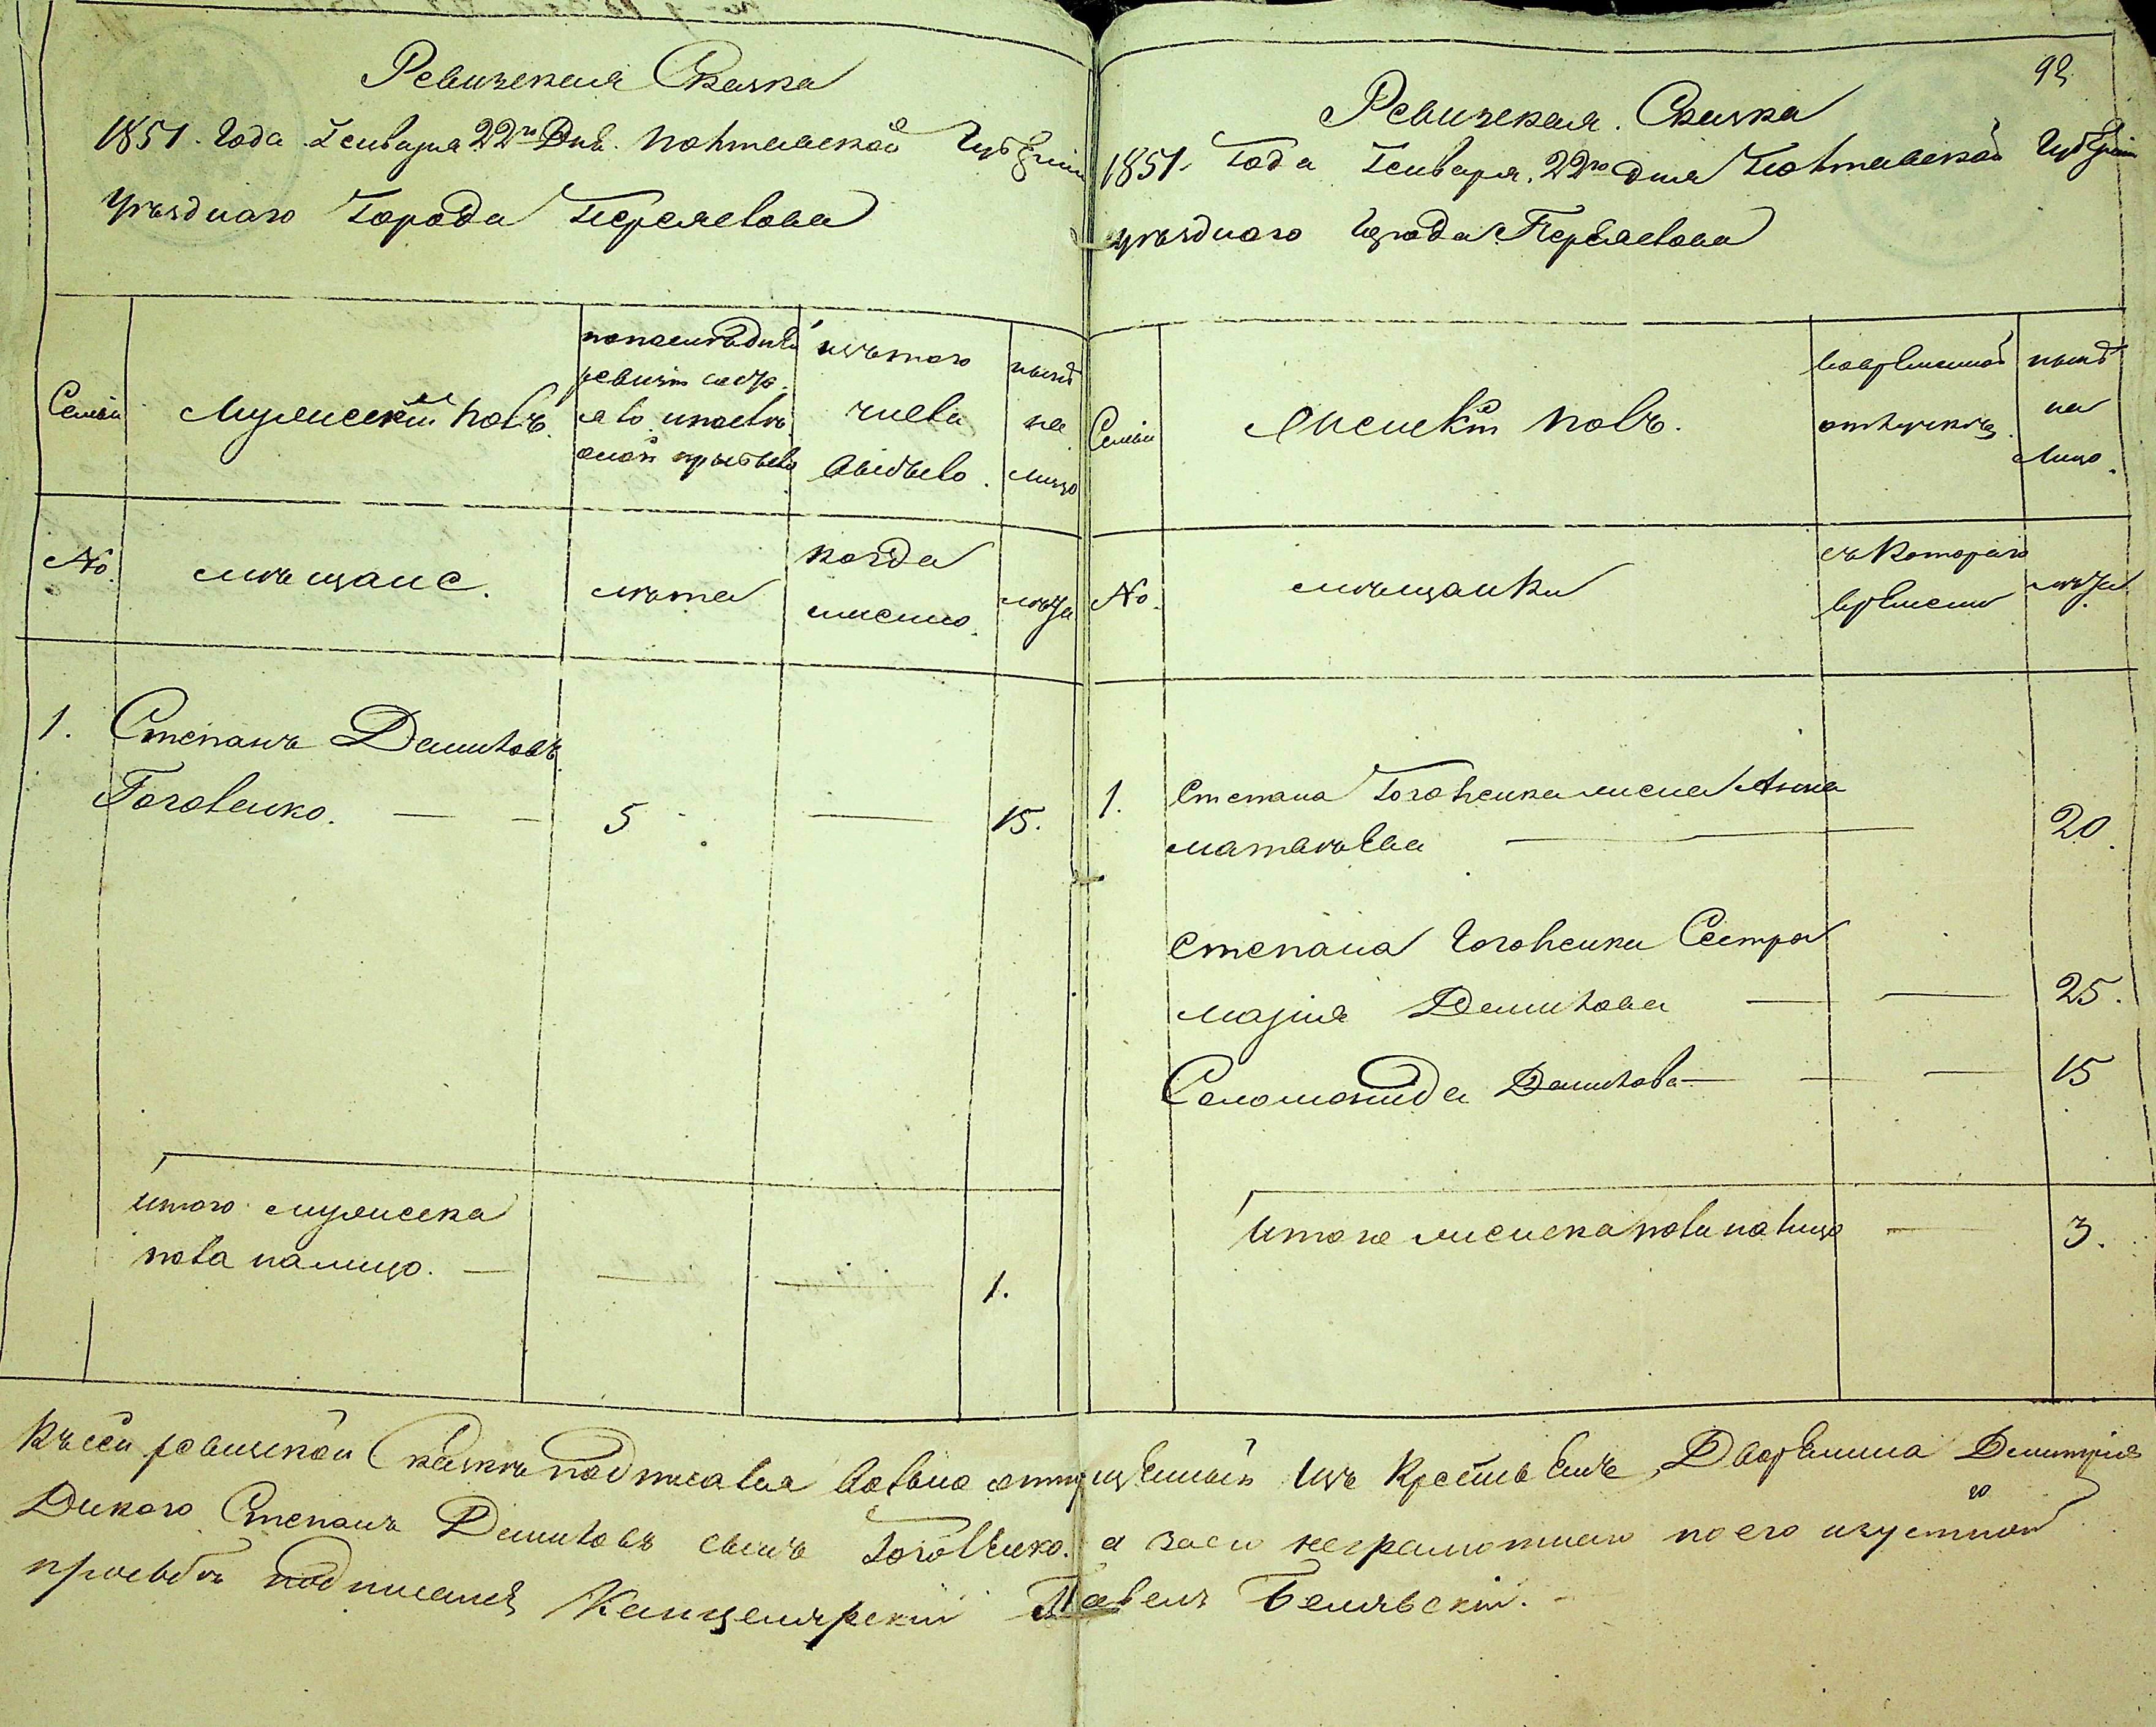 Ревизская Сказка
1851. Года Генваря 22го Дня. Полтавской Губерніи
уѣзднаго Города Переяслова
Семьи
Мужескій полъ.
по последнѣй
ревизіи состо
яло и послѣ
оной прибыло
изъ того
числа
выбыло.
нынѣ
на
лицо
№.
мѣщане.
лѣта
когда
имено.
лѣта
1. Степанъ Демидовъ
Гоголенко. — — 5 — 15.
итого мужеска
пола налицо. — — — 1.
92
Ревизская. Сказка
1851. Года Генваря. 22го дня Полтавской Губерніи
уѣзднаго города Переяслова
Семьи
Женскій полъ.
во временной
отлучкѣ.
нынѣ
на
лицо.
№.
мѣщанки
съ котораго
времени
лѣта
1. Степана Гоголенка жена Анна
— 20.
Степана Гоголенки Сестра
Марія Демидова — — 25.
Соломонида Демидова — — — 15
Итого женска пола на лицо — 3.
Къ сей ревизской Сказкѣ подписался вольно отпущенный изъ Крестьянъ Дворянина Дмитрія
Дикаго Степанъ Демидовъ сынъ Гоголенко. а за его неграмотнаго по его изустной
прозьбѣ подписался Канцелярскій Павелъ Белявскій.